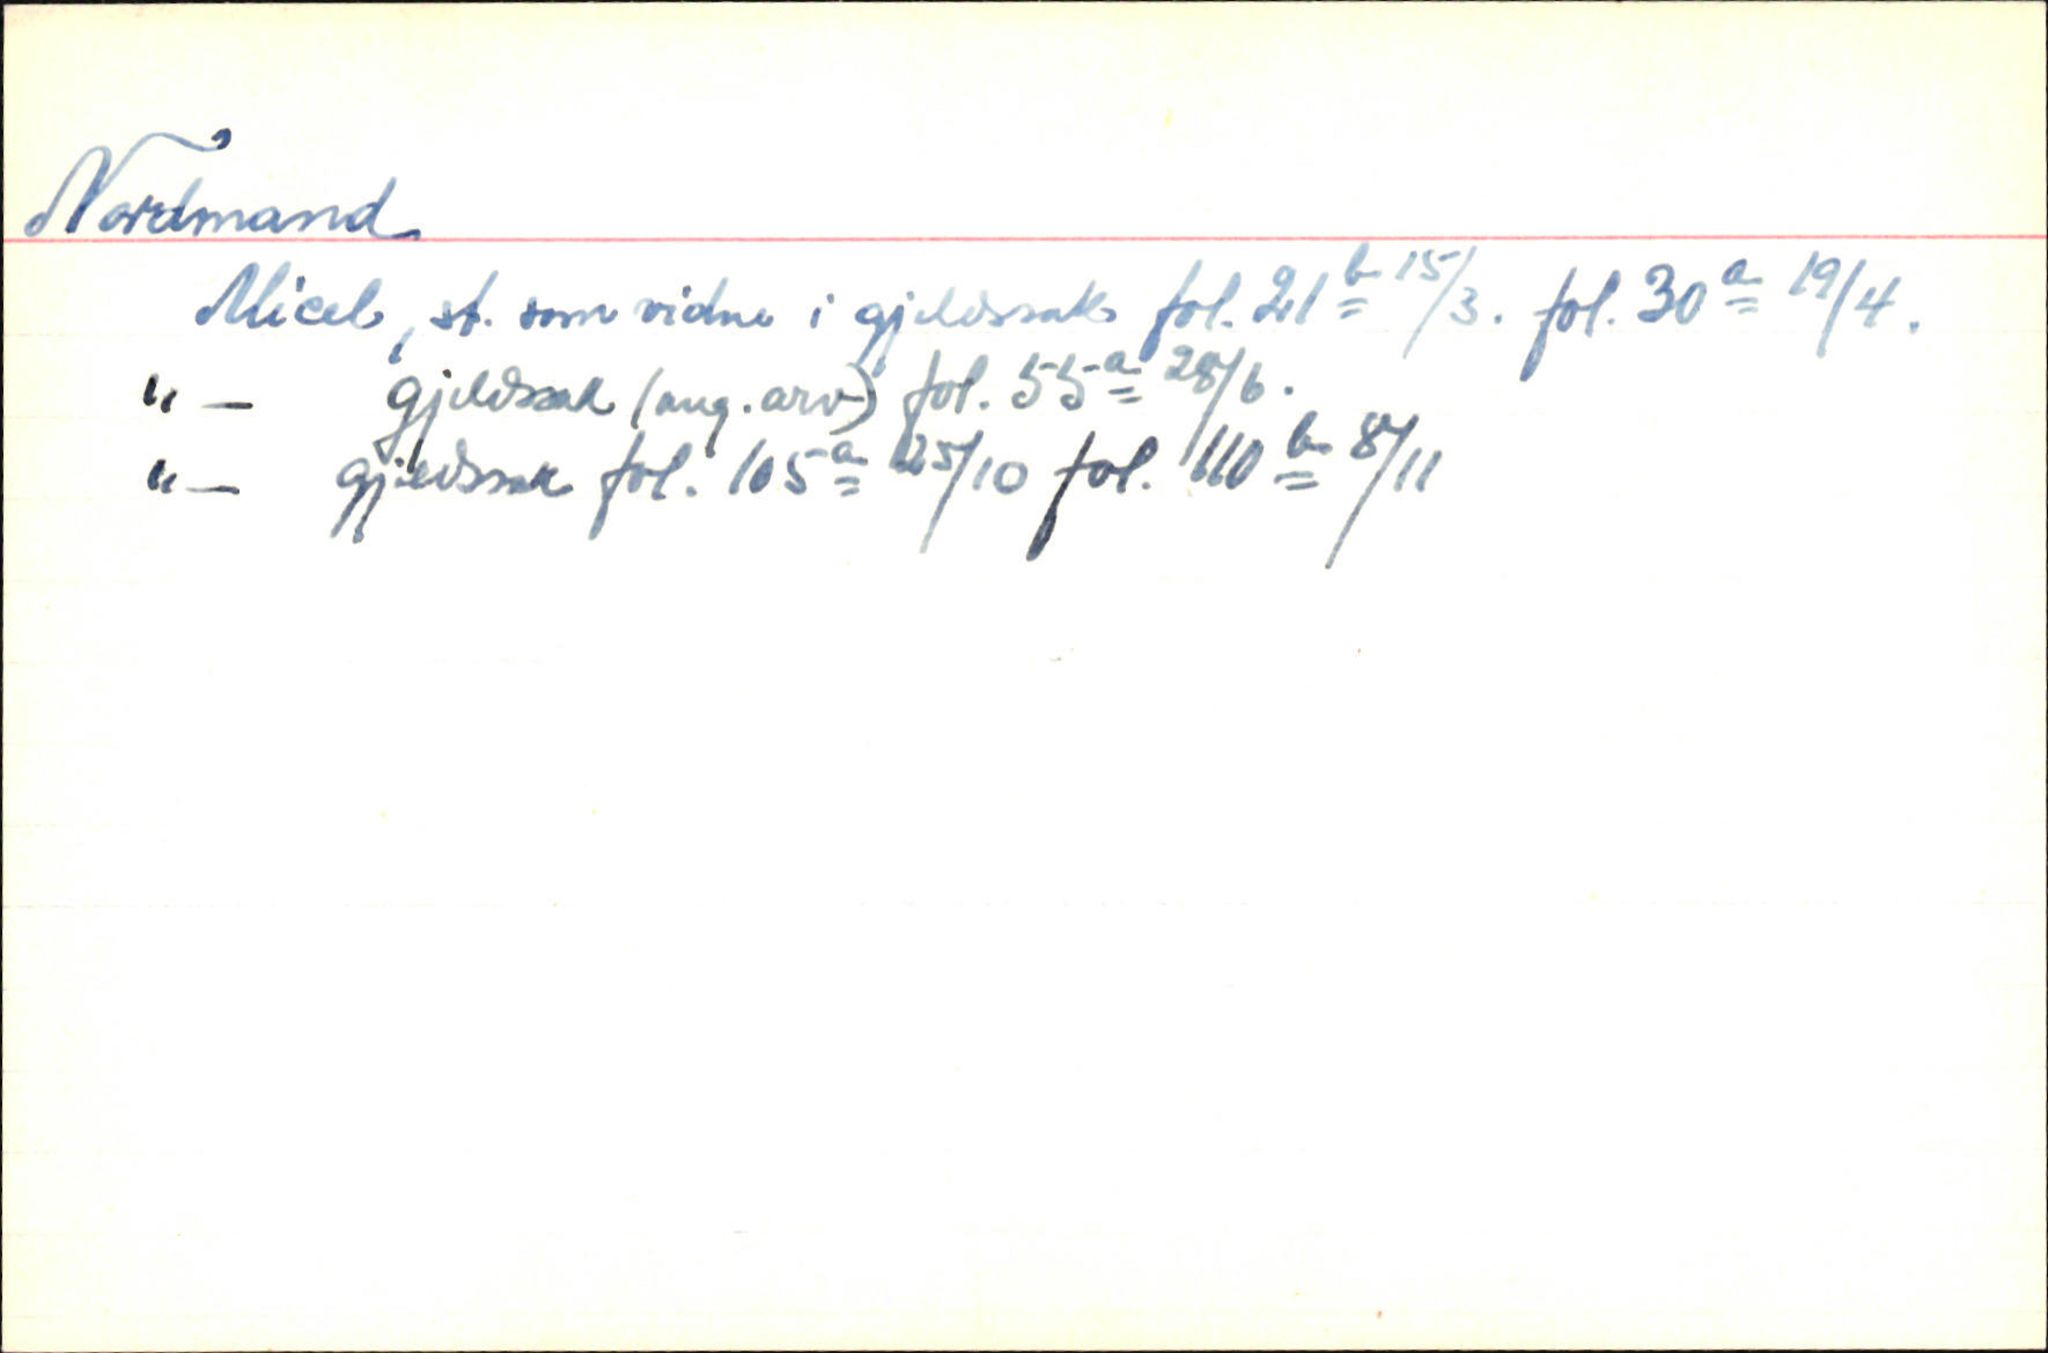 Nordmand
Micel, st. som vidne i gjeldssak fol. 21 b 15/3. fol. 30 a 19/4.
"— gjeldssak (ang. arv) fol. 55 a 28/6.
"— gjeldssak fol. 105 a 25/10 fol. 110 b 8/11